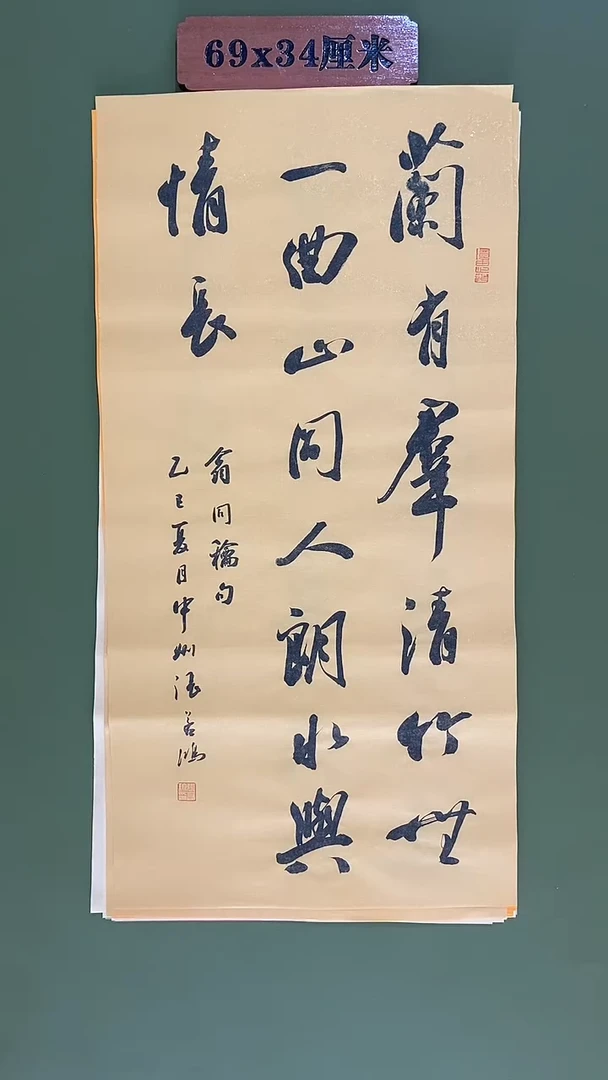 69x34厘米
蘭有羣清竹無
一曲山同人朗水與
情長
翁同龢句
乙巳夏月中州